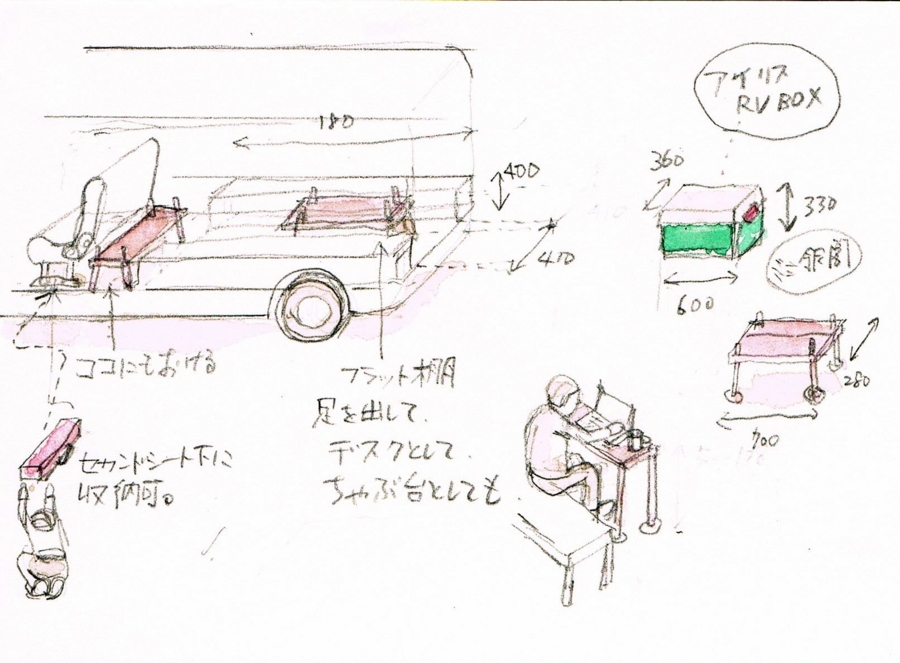 アイリス
RV BOX
180
400
410
360
330
600
銀閣
280
700
ココにもおける
フラット棚
足を出して、
デスクとして、
ちゃぶ台としても、
セカンドシート下に
収納可。